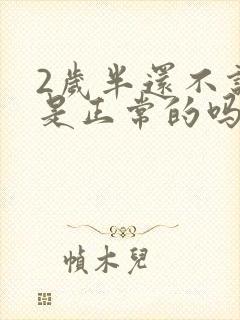 2歲半還不
是正常的吗
幀木兒